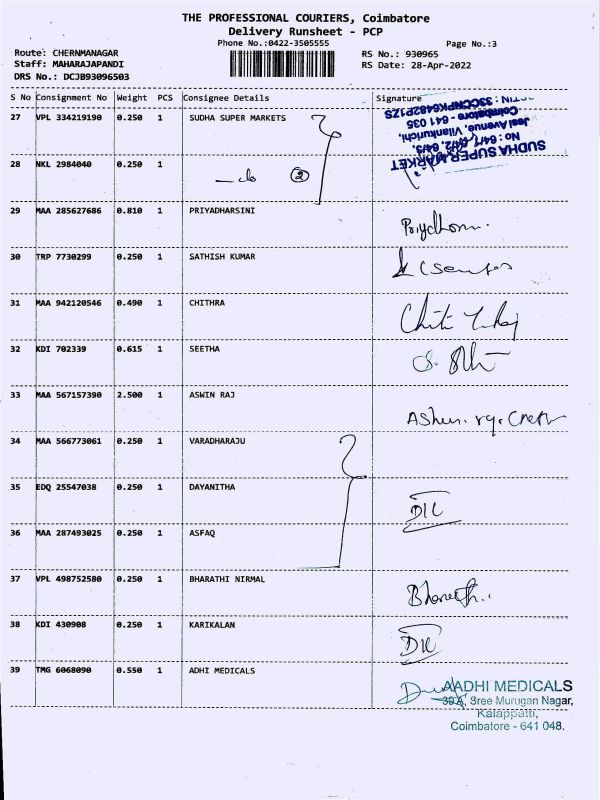 THE PROFESSIONAL COURIERS, Coimbatore
Delivery Runsheet - PCP
Phone No.:0422-3505555
Page No.:3
Route: CHERNMANAGAR
RS No.: 930965
Staff: MAHARAJAPANDI
RS Date: 28-Apr-2022
DRS No.: DCJB93096503
S No Consignment No Weight PCS Consignee Details Signature
27 VPL 334219190 0.250 1 SUDHA SUPER MARKETS
SUDHA SUPER MARKET
No : 64/1, 64/2, 64/3,
Jesi Avenue, Vilankurichi,
Coimbatore - 641 035
28 NKL 2984040 0.250 1
②
29 MAA 285627686 0.810 1 PRIYADHARSINI
30 TRP 7730299 0.250 1 SATHISH KUMAR
31 MAA 942120546 0.490 1 CHITHRA
32 KDI 702339 0.615 1 SEETHA
33 MAA 567157390 2.500 1 ASWIN RAJ
34 MAA 566773061 0.250 1 VARADHARAJU
35 EDQ 25547038 0.250 1 DAYANITHA
36 MAA 287493025 0.250 1 ASFAQ
37 VPL 498752580 0.250 1 BHARATHI NIRMAL
38 KDI 430908 0.250 1 KARIKALAN
39 TMG 6068090 0.550 1 ADHI MEDICALS
AADHI MEDICALS
Sree Murugan Nagar,
Kalappatti,
Coimbatore - 641 048.